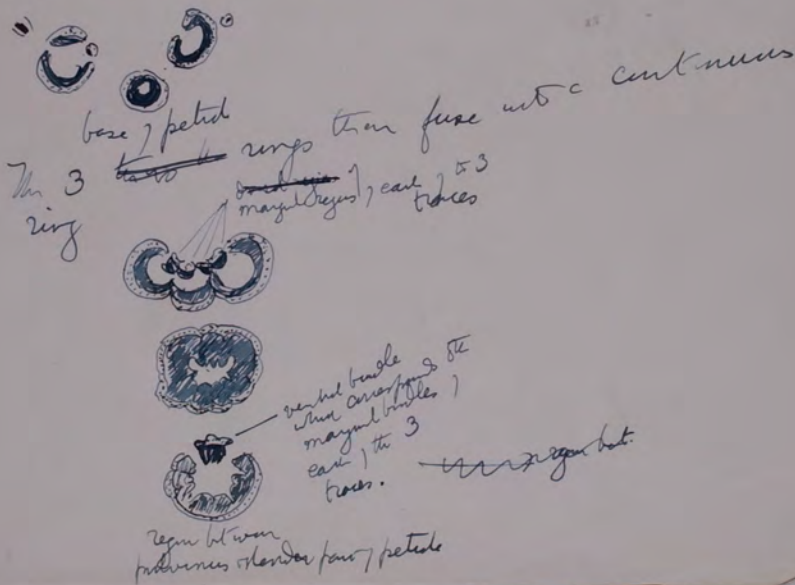 base of petiol
The 3 rings then fuse into a continuous
ring
marginal regions of each of the 3
traces
ventral bundle
which corresponds to the
marginal bundles of
each of the 3
traces.
region between
pulvinus slender part of petiole